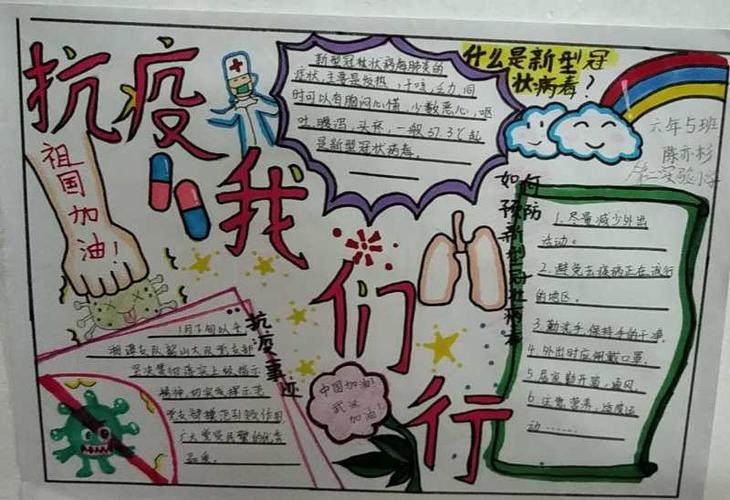 抗疫我们行
祖国加油！
新型冠状病毒肺炎的
症状，主要是发热，干咳，乏力，同
时可以有胸闷心慌，少数恶心，呕
吐，腹泻，头疼，一般37.3℃起
是新型冠状病毒。
什么是新型冠
状病毒？
六年5班
陈亦杉
第二实验小学
如何
预防
新型冠状病毒
1.尽量减少外出
活动。
2.避免去疾病正在流行
的地区。
3.勤洗手，保持手的干净
4.外出时应佩戴口罩
5.居室勤开窗，通风
6.注意营养，适度运
动……
抗疫事迹
1月下旬以来
坚决贯彻落实上级指示
精神，切实发挥示范
广大党员民警的优秀
品质。
中国加油！
武汉
加油！